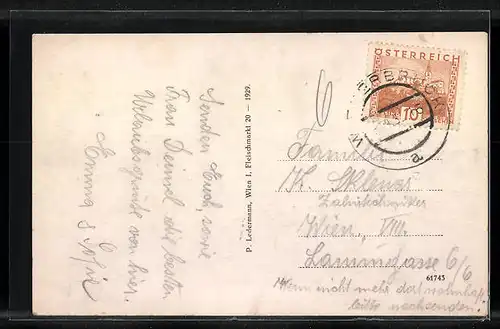 Senden Euch, sowie
Frau Deinel die besten
Urlaubsgrüße von hier.
Emma & Sofie
P. Ledermann, Wien I. Fleischmarkt 20 - 1929.
6
ÖSTERREICH
10
Familie
K. Sklenar
Wien, VIII.
Lammgasse 6/6
61745
Wenn nicht mehr dort wohnhaft
bitte nachsenden.